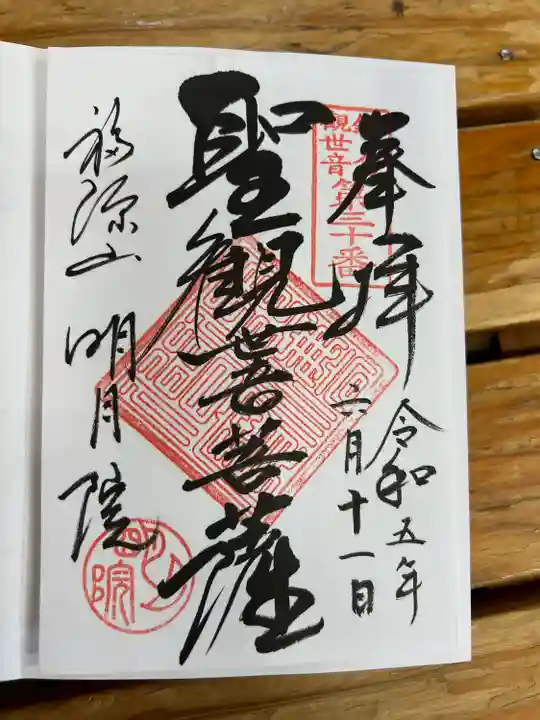 奉拝
令和五年
六月十一日
鎌倉
観世音第三十番
聖觀世音菩薩
福源山 明月院